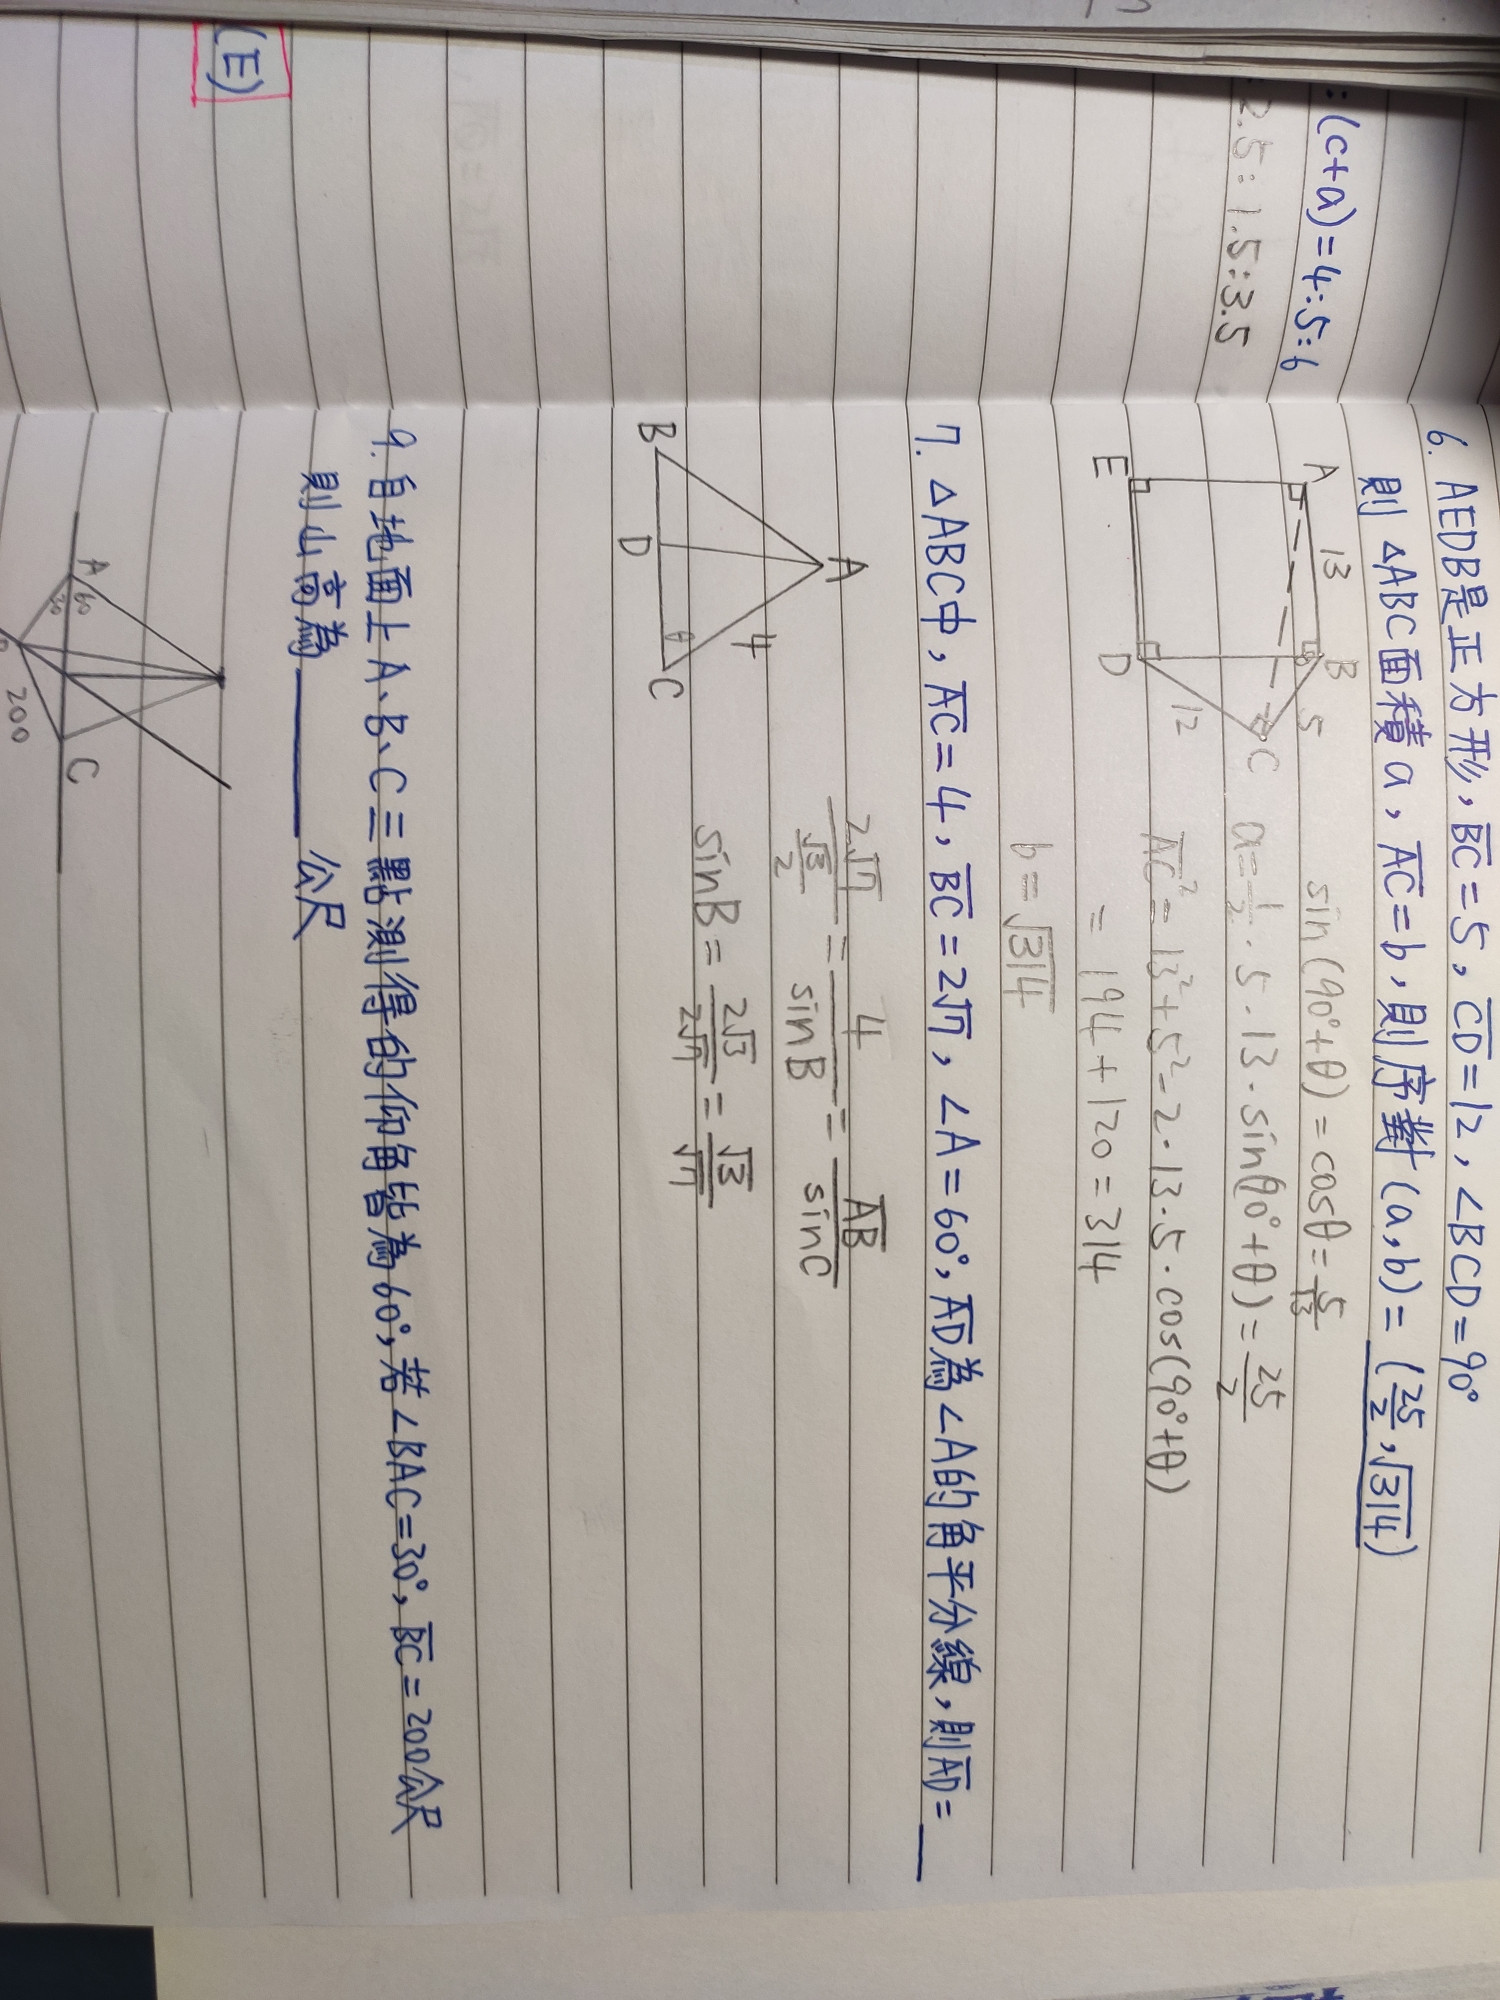 :(c+a)=4:5:6
2.5:1.5:3.5
(E)
6. AEDB是正方形, BC=5, CD=12, ∠BCD=90°
則 △ABC面積a, AC=b, 則序對(a,b)=(25/2, √314)
A 13 B 5 C 12 D E θ
sin(90°+θ)=cosθ=5/13
a=1/2·5·13·sin(90°+θ)=25/2
AC²=13²+5²-2·13·5·cos(90°+θ)
=194+120=314
b=√314
7. △ABC中, AC=4, BC=2√7, ∠A=60°, AD為∠A的角平分線, 則AD=
A 4 B D θ C
2√7/(√3/2)=4/sinB=AB/sinC
sinB=2√3/2√7=√3/√7
9. 自地面上A、B、C三點測得的仰角皆為60°, 若∠BAC=30°, BC=200公尺
則山高為______公尺
A 60 30 C
200